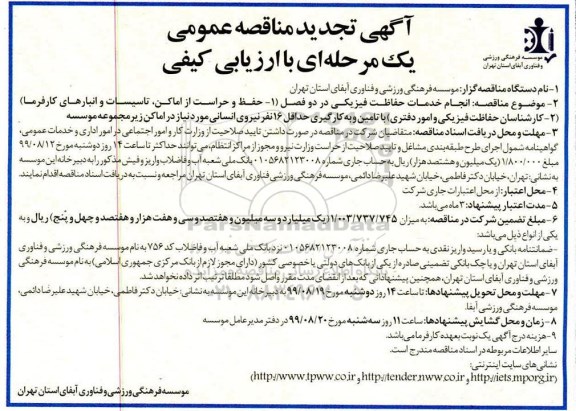 آگهی تجدید مناقصه عمومی
یک مرحله‌ای با ارزیابی کیفی
موسسه فرهنگی ورزشی
وفناوری آبفای استان تهران
۱- نام دستگاه مناقصه گزار: موسسه فرهنگی ورزشی و فناوری آبفای استان تهران
۲- موضوع مناقصه: انجام خدمات حفاظت فیزیکی در دو فصل (۱- حفظ و حراست از اماکن، تاسیسات و انبارهای کارفرما)
(۲- کارشناسان حفاظت فیزیکی و امور دفتری) با تامین و به کارگیری حداقل ۱۶ نفر نیروی انسانی مورد نیاز در اماکن زیر مجموعه موسسه
۳- مهلت و محل دریافت اسناد مناقصه: متقاضیان شرکت در مناقصه در صورت داشتن تایید صلاحیت از وزارت کار و امور اجتماعی در امور اداری و خدمات عمومی،
گواهینامه شمول اجرای طرح طبقه‌بندی مشاغل و تایید صلاحیت از حراست وزارت نیرو و مجوز از مراکز انتظام، می‌توانند حداکثر تا ساعت ۱۴ روز دوشنبه مورخ ۹۹/۰۸/۱۲
مبلغ ۱/۸۰۰/۰۰۰ (یک میلیون و هشتصد هزار) ریال به حساب جاری شماره ۰۱۰۵۶۸۲۱۲۳۰۰۸ بانک ملی شعبه آب و فاضلاب واریز و فیش مذکور را به دبیرخانه این موسسه
به نشانی: تهران، خیابان دکتر فاطمی، خیابان شهید علیرضا دائمی، موسسه فرهنگی ورزشی فناوری آبفای استان تهران مراجعه و نسبت به دریافت اسناد مناقصه اقدام نمایند.
۴- محل اعتبار: از محل اعتبارات جاری شرکت
۵- مدت اعتبار پیشنهاد: ۳ ماه می‌باشد.
۶- مبلغ تضمین شرکت در مناقصه: به میزان ۱/۰۰۳/۷۳۷/۷۴۵ (یک میلیارد و سه میلیون و هفتصد و سی و هفت هزار و هفتصد و چهل و پنج) ریال و به
یکی از انواع ذیل می‌باشد:
-ضمانتنامه بانکی و یا رسید واریز نقدی به حساب جاری شماره ۰۱۰۵۶۸۲۱۲۳۰۰۸ نزد بانک ملی شعبه آب و فاضلاب کد ۷۵۶ به نام موسسه فرهنگی ورزشی و فناوری
آبفای استان تهران و یا چک بانکی تضمینی صادره از یکی از بانک‌های دولتی یا خصوصی کشور (دارای مجوز لازم از بانک مرکزی جمهوری اسلامی) به نام موسسه فرهنگی
ورزشی و فناوری آبفای استان تهران، همچنین پیشنهاداتی که بعد از انقضای مدت مقرر واصل شود مطلقا ترتیب اثر داده نخواهد شد.
۷- مهلت و محل تحویل پیشنهادها: تا ساعت ۱۴ روز دوشنبه مورخ ۹۹/۰۸/۱۹ به دبیرخانه این موسسه به نشانی: خیابان دکتر فاطمی، خیابان شهید علیرضا دائمی،
موسسه فرهنگی ورزشی آبفا.
۸- زمان و محل گشایش پیشنهادها: ساعت ۱۱ روز سه‌شنبه مورخ ۹۹/۰۸/۲۰ در دفتر مدیرعامل موسسه
۹- هزینه درج آگهی یک نوبت بعهده کارفرما می‌باشد.
سایر اطلاعات مربوطه در اسناد مناقصه مندرج است.
نشانی‌های سایت اینترنتی:
(http://iets.mporg.ir) و http://tender.nww.co.ir و http://www.tpww.co.ir)
موسسه فرهنگی ورزشی و فناوری آبفای استان تهران